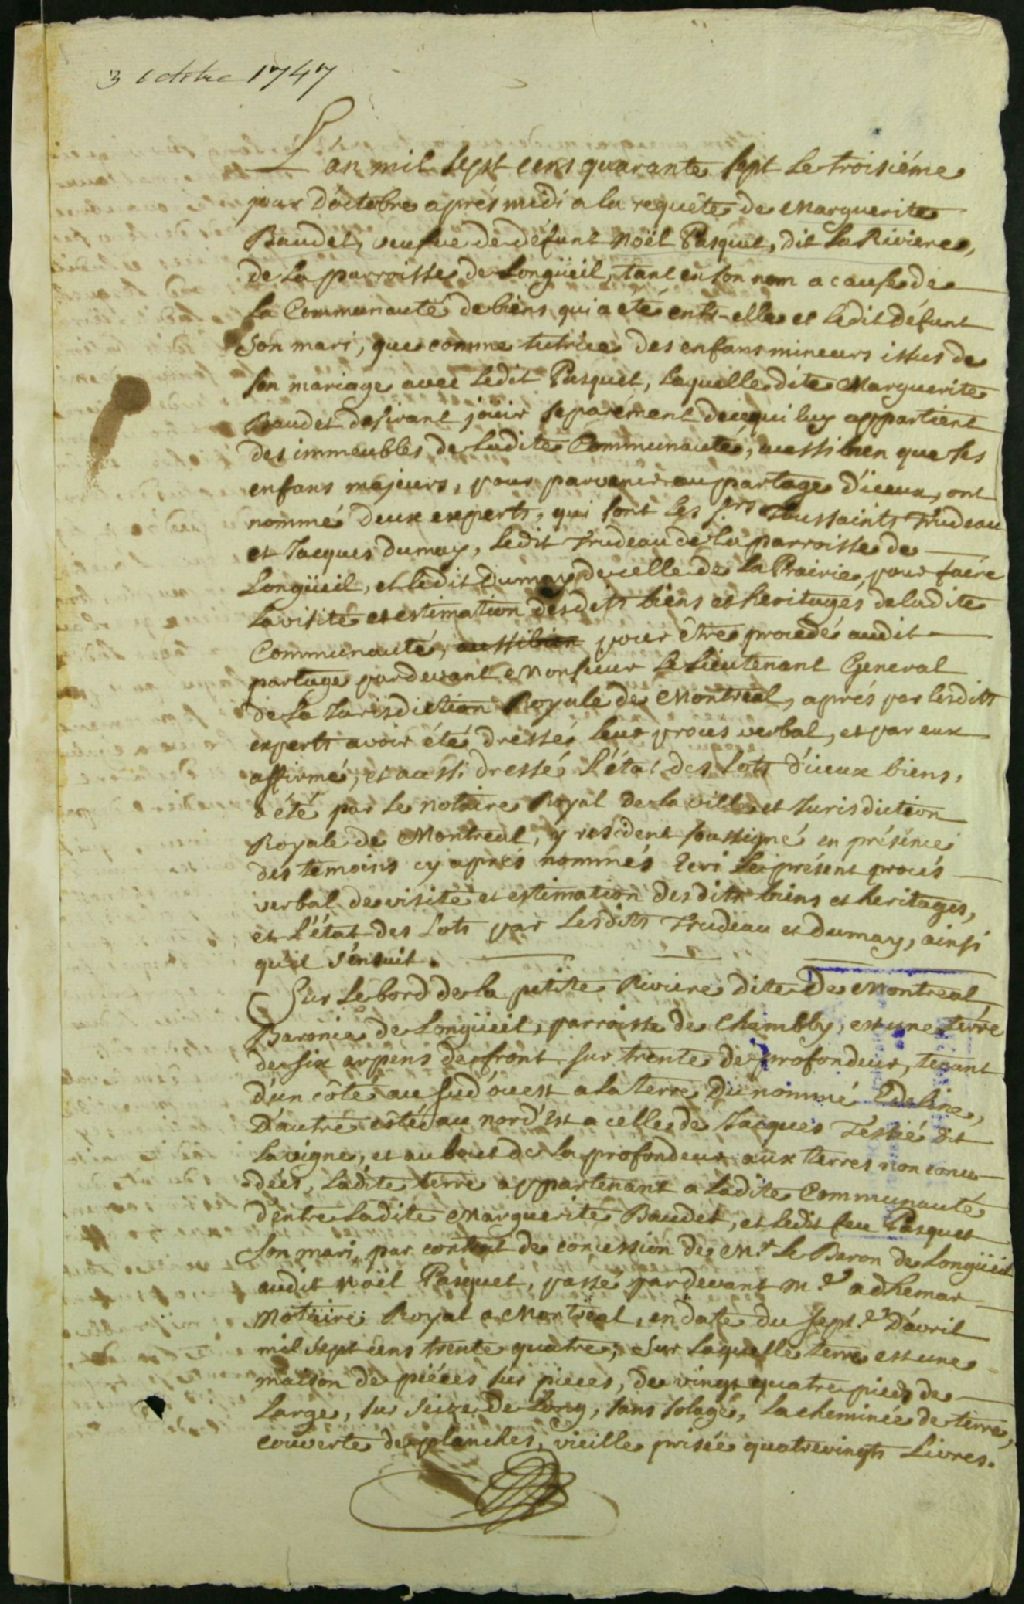 3 octobre 1747
L'an mil sept cens quarante sept le troisiéme
jour d'octobre aprés midi a la requête de Marguerite
Baudet, veufve de défunt Noël Pasquet, dit la Riviere,
de la parroisse de Longüeil, tant en son nom a cause de
la Communauté de biens qui a été entr-elle et ledit Défunt
son mari, que comme tutrice des enfans mineurs issus de
son mariage avec ledit Pasquet, laquelle dite Marguerite
Baudet desirant joüir separément de ce qui luy appartient
des immeubles de ladite Communauté, aussi bien que ses
enfans majeurs, pour parvenir au partage d'iceux, ont
nommé deux experts, qui sont les Srs Toussaints Trudeau
et Jacques Dumay, ledit Trudeau de la parroisse de
Longüeil, et ledit Dumay de celle de la Prairie, pour faire
la visite et estimation desdits biens et heritages de ladite
Communauté, aussi bien pour être procedé audit
partage pardevant Monsieur le Lieutenant General
de la Jurisdiction Royale de Montreal, aprés par lesdits
experts avoir été dressé leur procés verbal, et par eux
affirmé, et aussi dressé l'état des lots d'iceux biens,
a été par le notaire Royal de la ville et Jurisdiction
Royale de Montreal, y resident soussigné en présence
des temoins cy aprés nommés Ecri le présent procés
verbal de visite et estimation desdits biens et heritages,
et l'état des lots par lesdits Trudeau et Dumay, ainsi
qu'il s'ensuit.
Sur le bord de la petite Riviere dite De Montreal
Baronie de Longüeil, parroisse de Chambly, est une terre
de six arpens de front sur trente de profondeur, tenant
d'un côté au sud'ouest a la terre du nommé
D'autre côté au nord'Est a celle de Jacques Tessié dit
Lavigne, et au bout de la profondeur aux terres non conce-
dées, Ladite terre appartenant a ladite Communauté
d'entre ladite Marguerite Baudet, et ledit feu Pasquet
son mari, par contrat de concession de Mr. Le Baron de Longüeil
audit Noël Pasquet, passé pardevant Me. adhemar
Notaire Royal a Montreal, en date du sept.e D'avril
mil sept cens trente quatre; sur laquelle terre est une
maison de piéces sur piéces, de vingt quatre pieds de
large, sur seize de long, sans solage, la cheminée de terre,
couverte de planches, vieille prisée quatrevingts Livres.